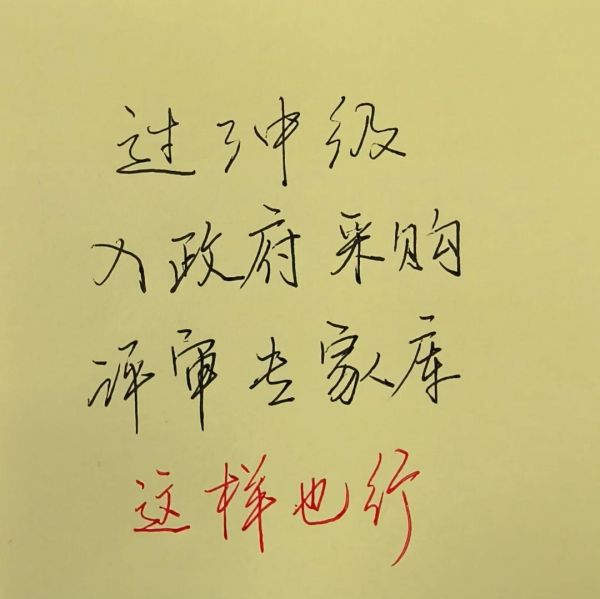 过了中级
入政府采购
评审专家库
这样也行